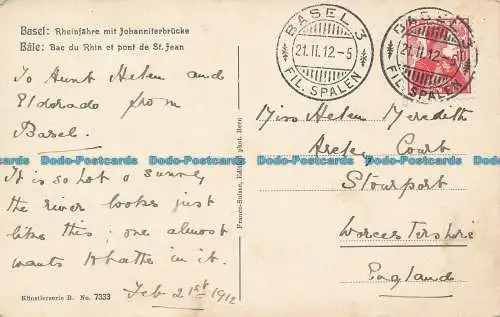 Basel: Rheinfähre mit Johanniterbrücke
Bâle: Bac du Rhin et pont de St. Jean
BASEL 3
21.II.12.-5
FIL. SPALEN
BASEL 3
21.II.12.-5
FIL. SPALEN
To Aunt Helen and
Eldorado from
Basel.
It is so hot & sunny
the river looks just
like this; one almost
wants to bathe in it.
Feb 21st 1912
Miss Helen Meredith
Areley Court
Stourport
Worcestershire
England
Franco-Suisse, Editions phot. Bern
Künstlerserie B. No. 7533
Dodo-Postcards Dodo-Postcards Dodo-Postcards Dodo-Postcards
Dodo-Postcards Dodo-Postcards Dodo-Postcards Dodo-Postcards